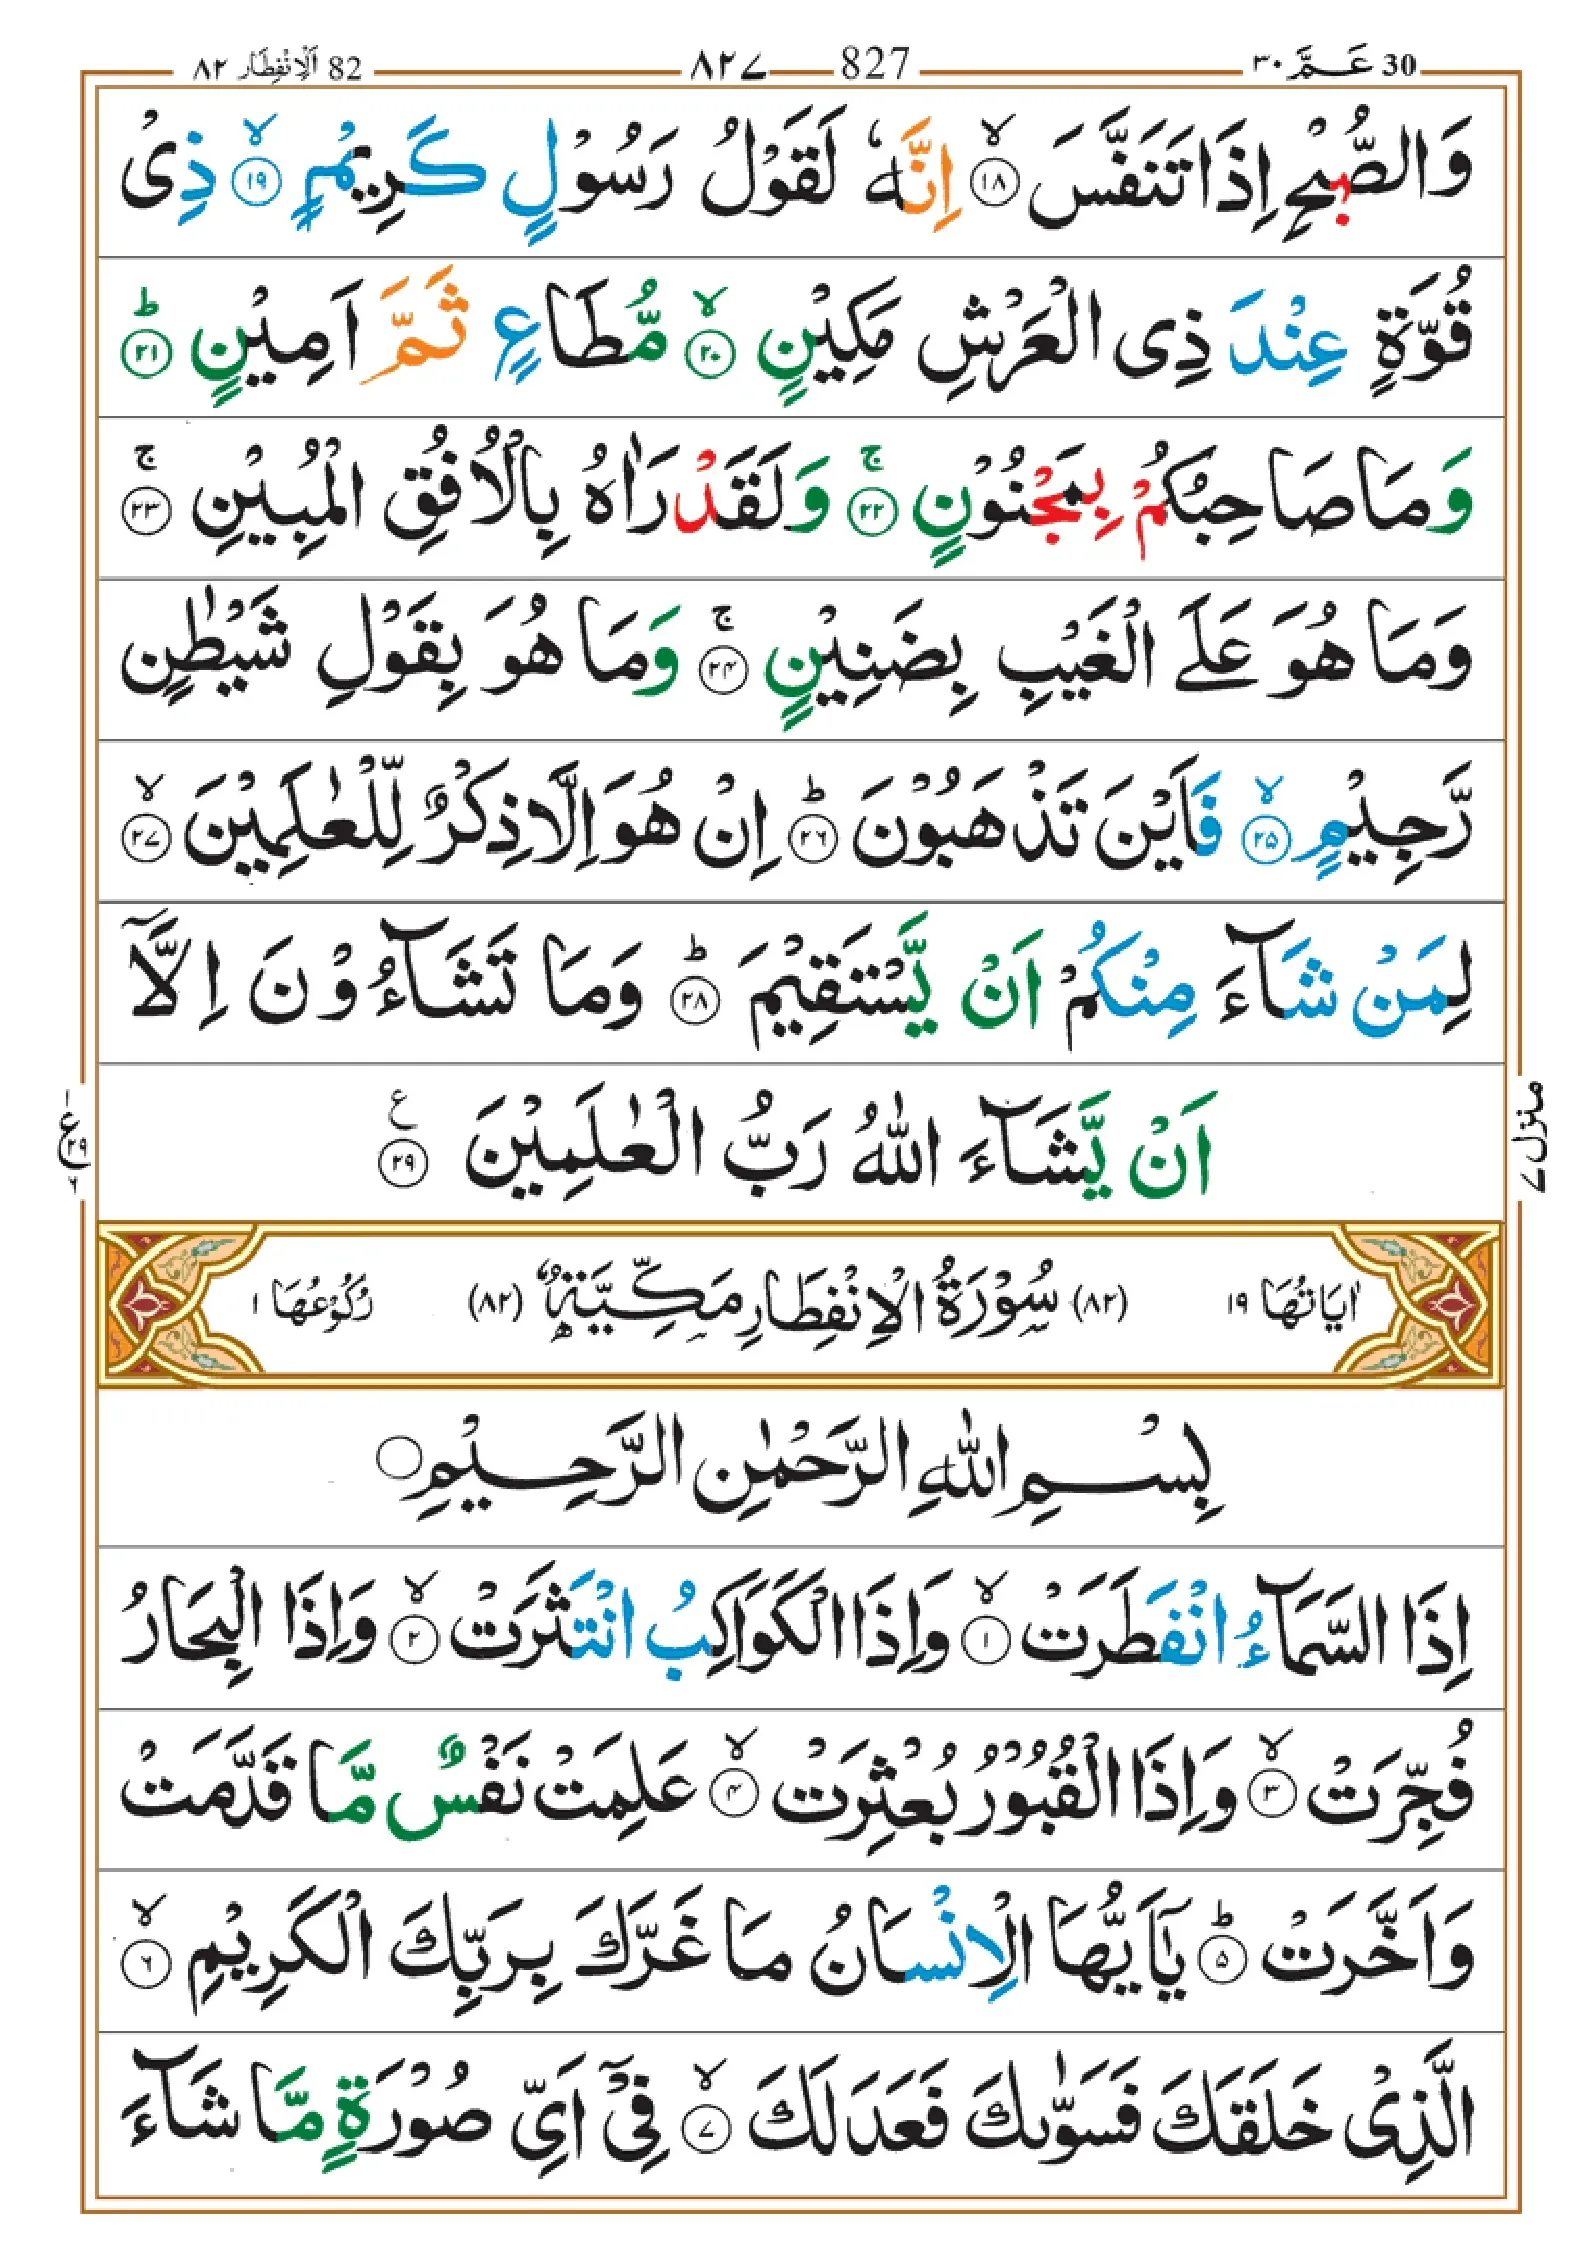 30 عَـمَّ ٣٠ 827 ٨٢٧ 82 اَلْاِنْفِطَار ٨٢
وَالصُّبْحِ اِذَا تَنَفَّسَ ۙ﴿١٨﴾ اِنَّهٗ لَقَوْلُ رَسُوْلٍ كَرِيْمٍ ۙ﴿١٩﴾ ذِىْ
قُوَّةٍ عِنْدَ ذِى الْعَرْشِ مَكِيْنٍ ۙ﴿٢٠﴾ مُّطَاعٍ ثَمَّ اَمِيْنٍ ؕ﴿٢١﴾
وَمَا صَاحِبُكُمْ بِمَجْنُوْنٍ ۚ﴿٢٢﴾ وَلَقَدْ رَاٰهُ بِالْاُفُقِ الْمُبِيْنِ ۚ﴿٢٣﴾
وَمَا هُوَ عَلَى الْغَيْبِ بِضَنِيْنٍ ۚ﴿٢٤﴾ وَمَا هُوَ بِقَوْلِ شَيْطٰنٍ
رَّجِيْمٍ ۙ﴿٢٥﴾ فَاَيْنَ تَذْهَبُوْنَ ؕ﴿٢٦﴾ اِنْ هُوَ اِلَّا ذِكْرٌ لِّلْعٰلَمِيْنَ ۙ﴿٢٧﴾
لِمَنْ شَآءَ مِنْكُمْ اَنْ يَّسْتَقِيْمَ ؕ﴿٢٨﴾ وَمَا تَشَآءُوْنَ اِلَّاۤ
اَنْ يَّشَآءَ اللّٰهُ رَبُّ الْعٰلَمِيْنَ ﴿٢٩﴾ ع
منزل ٧
ع ١ ٢٩ ٦
اٰيَاتُهَا ١٩ (٨٢) سُوْرَةُ الْاِنْفِطَارِ مَكِّيَّةٌ (٨٢) رُكُوْعُهَا ١
بِسْمِ اللّٰهِ الرَّحْمٰنِ الرَّحِيْمِ
اِذَا السَّمَآءُ انْفَطَرَتْ ۙ﴿١﴾ وَاِذَا الْكَوَاكِبُ انْتَثَرَتْ ۙ﴿٢﴾ وَاِذَا الْبِحَارُ
فُجِّرَتْ ۙ﴿٣﴾ وَاِذَا الْقُبُوْرُ بُعْثِرَتْ ۙ﴿٤﴾ عَلِمَتْ نَفْسٌ مَّا قَدَّمَتْ
وَاَخَّرَتْ ؕ﴿٥﴾ يٰۤاَيُّهَا الْاِنْسَانُ مَا غَرَّكَ بِرَبِّكَ الْكَرِيْمِ ۙ﴿٦﴾
الَّذِىْ خَلَقَكَ فَسَوّٰىكَ فَعَدَلَكَ ۙ﴿٧﴾ فِىْۤ اَىِّ صُوْرَةٍ مَّا شَآءَ